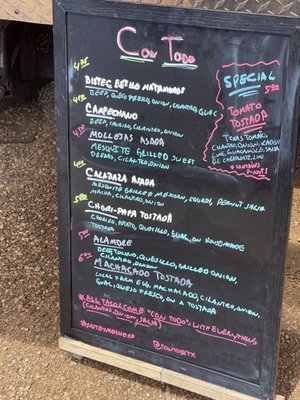 CON TODO
4.00 BISTEC ESTILO MATAMOROS
BEEF, QUESO FRESCO, ONION, CILANTRO, GUAC
4.00 CAMPECHANO
BEEF, CHORIZO, CILANTRO, ONION
4.00 MOLLEJAS ASADA
MESQUITE GRILLED SWEET
BREAD, CILANTRO, ONION
4.00 CALABAZA ASADA
MESQUITE GRILLED MEXICAN SQUASH, PEANUT SALSA
MACHA, CILANTRO, ONION
5.00 CHORI-PAPA TOSTADA
CHORIZO, PAPA, QUESILLO, GUAC, ON HOUSEMADE
TOSTADA
5.00 ALAMBRE
BEEF, TOCINO, QUESILLO, GRILLED ONION,
CILANTRO, ONION
6.00 MACHACADO TOSTADA
LOCAL FARM EGG, MACHACADO, CILANTRO, ONION,
GUAC, QUESO FRESCO, ON A TOSTADA
*ALL TACOS COME "CON TODO", WITH EVERYTHING
(CILANTRO, ONION, SALSA)
@CONTODOTX
SPECIAL
5.00
TOMATO
TOSTADA
TEXAS TOMATO,
CILANTRO, ONION,
LIME, GUACAMOLE, SALSA
DE CACAHUATE, LIME
* CONTAINS
P-NUTS